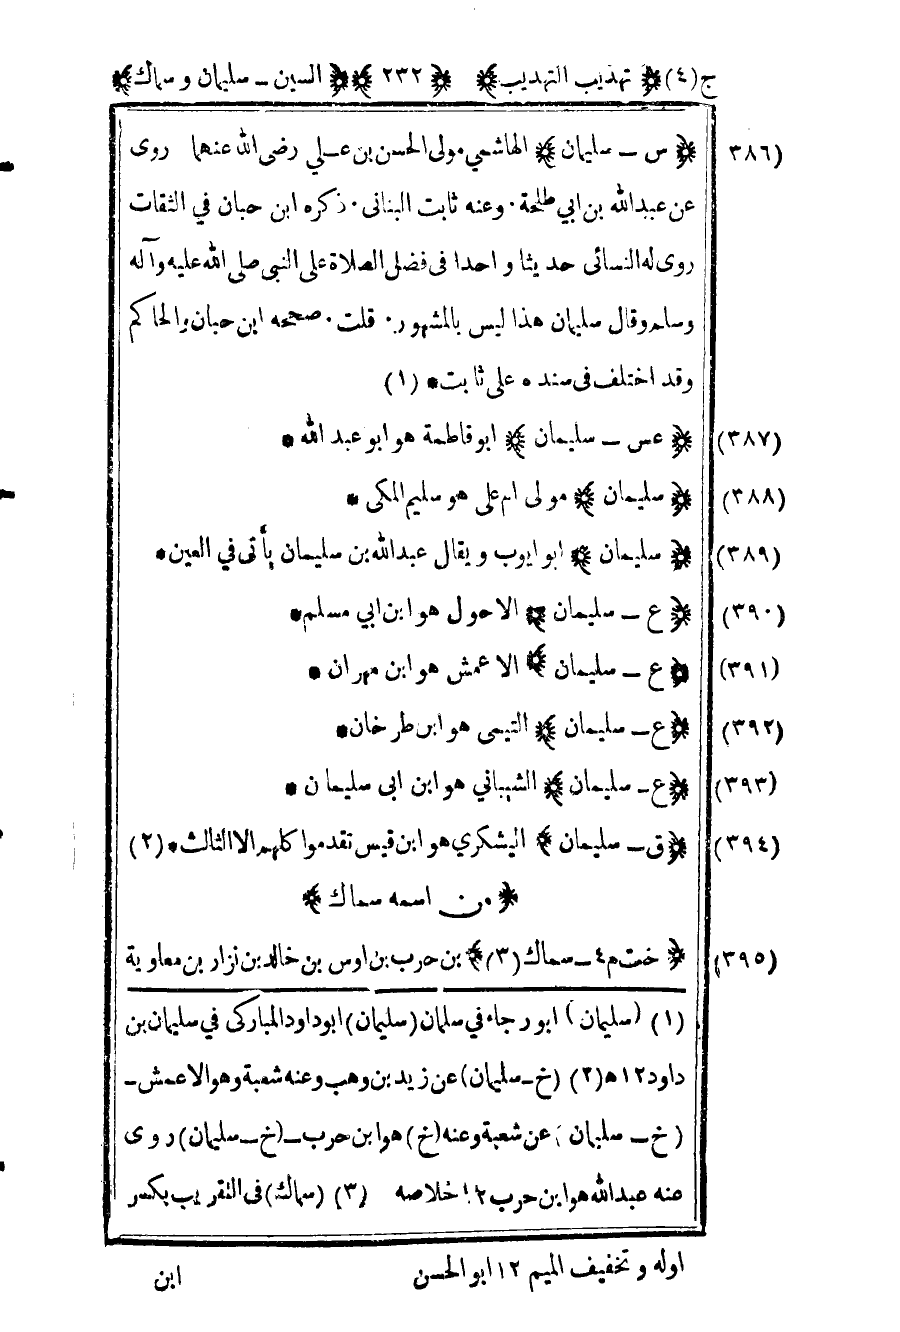 ج(٤) ﴿ تهذيب التهذيب ﴾ ﴿ ٢٣٢ ﴾ ﴿ السين ــ سليمان و سماك ﴾
(٣٨٦ ﴿ س ــ سليمان ﴾ الهاشمي مولى الحسن بن عــلي رضى الله عنهما روى
عن عبدالله بن ابي طلحة ٠ وعنه ثابت البنانى ٠ ذكره ابن حبان في الثقات
روى له النسائى حديثا واحدا فى فضل الصلاة على النبى صلى الله عليه وآله
وسلم وقال سليمان هذا ليس بالمشهور ٠ قلت ٠ صححه ابن حبان والحاكم
وقد اختلف فى سنده على ثابت * (١)
(٣٨٧) ﴿ عس ــ سليمان ﴾ ابو فاطمة هو ابو عبد الله *
(٣٨٨) ﴿ سليمان ﴾ مولى ام على هو سليم المكى *
(٣٨٩) ﴿ سليمان ﴾ ابو ايوب ويقال عبدالله بن سليمان يأتى في العين *
(٣٩٠) ﴿ ع ــ سليمان ﴾ الاحول هو ابن ابي مسلم *
(٣٩١) ﴿ ع ــ سليمان ﴾ الاعمش هو ابن مهران *
(٣٩٢) ﴿ ع ــ سليمان ﴾ التيمى هو ابن طرخان *
(٣٩٣) ﴿ ع ــ سليمان ﴾ الشيباني هو ابن ابى سليمان *
(٣٩٤) ﴿ ق ــ سليمان ﴾ اليشكري هو ابن قيس تقدموا كلهم الا الثالث * (٢)
﴿ من اسمه سماك ﴾
(٣٩٥) ﴿ خت م ٤ ــ سماك (٣) ﴾ بن حرب بن اوس بن خالد بن نزار بن معاوية
(١) (سليمان) ابو رجاء في سلمان (سليمان) ابو داود المباركى في سليمان بن
داود ١٢ ه (٢) (خ ــ سليمان) عن زيد بن وهب وعنه شعبة وهو الاعمش ــ
(خ ــ سليمان) عن شعبة وعنه (خ) هو ابن حرب ــ (خ ــ سليمان) روى
عنه عبدالله هو ابن حرب ١٢ خلاصه (٣) (سماك) فى التقريب بكسر
اوله وتخفيف الميم ١٢ ابو الحسن
ابن